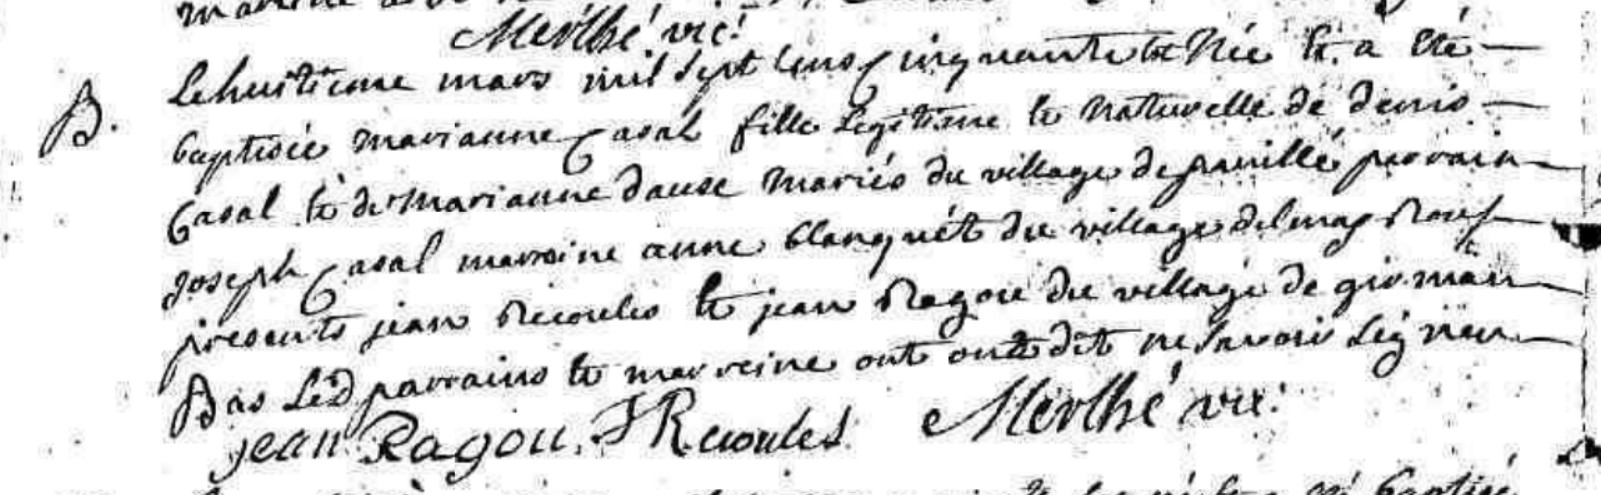 Merlhé vic:
B.
Le huitieme mars mil sept cens cinquante et Née et a été
baptisée marianne Casal fille Legitime et Naturelle de denis
Casal et de marianne dause mariés du village de parrain
joseph Casal marraine anne blanquét du village delmas
presents jean Recoules et jean Ragou du village de
Bas Led parrains et marreine ont dit ne savoir signer
jean Ragou. J Recoules Merlhé vic:
baptisé